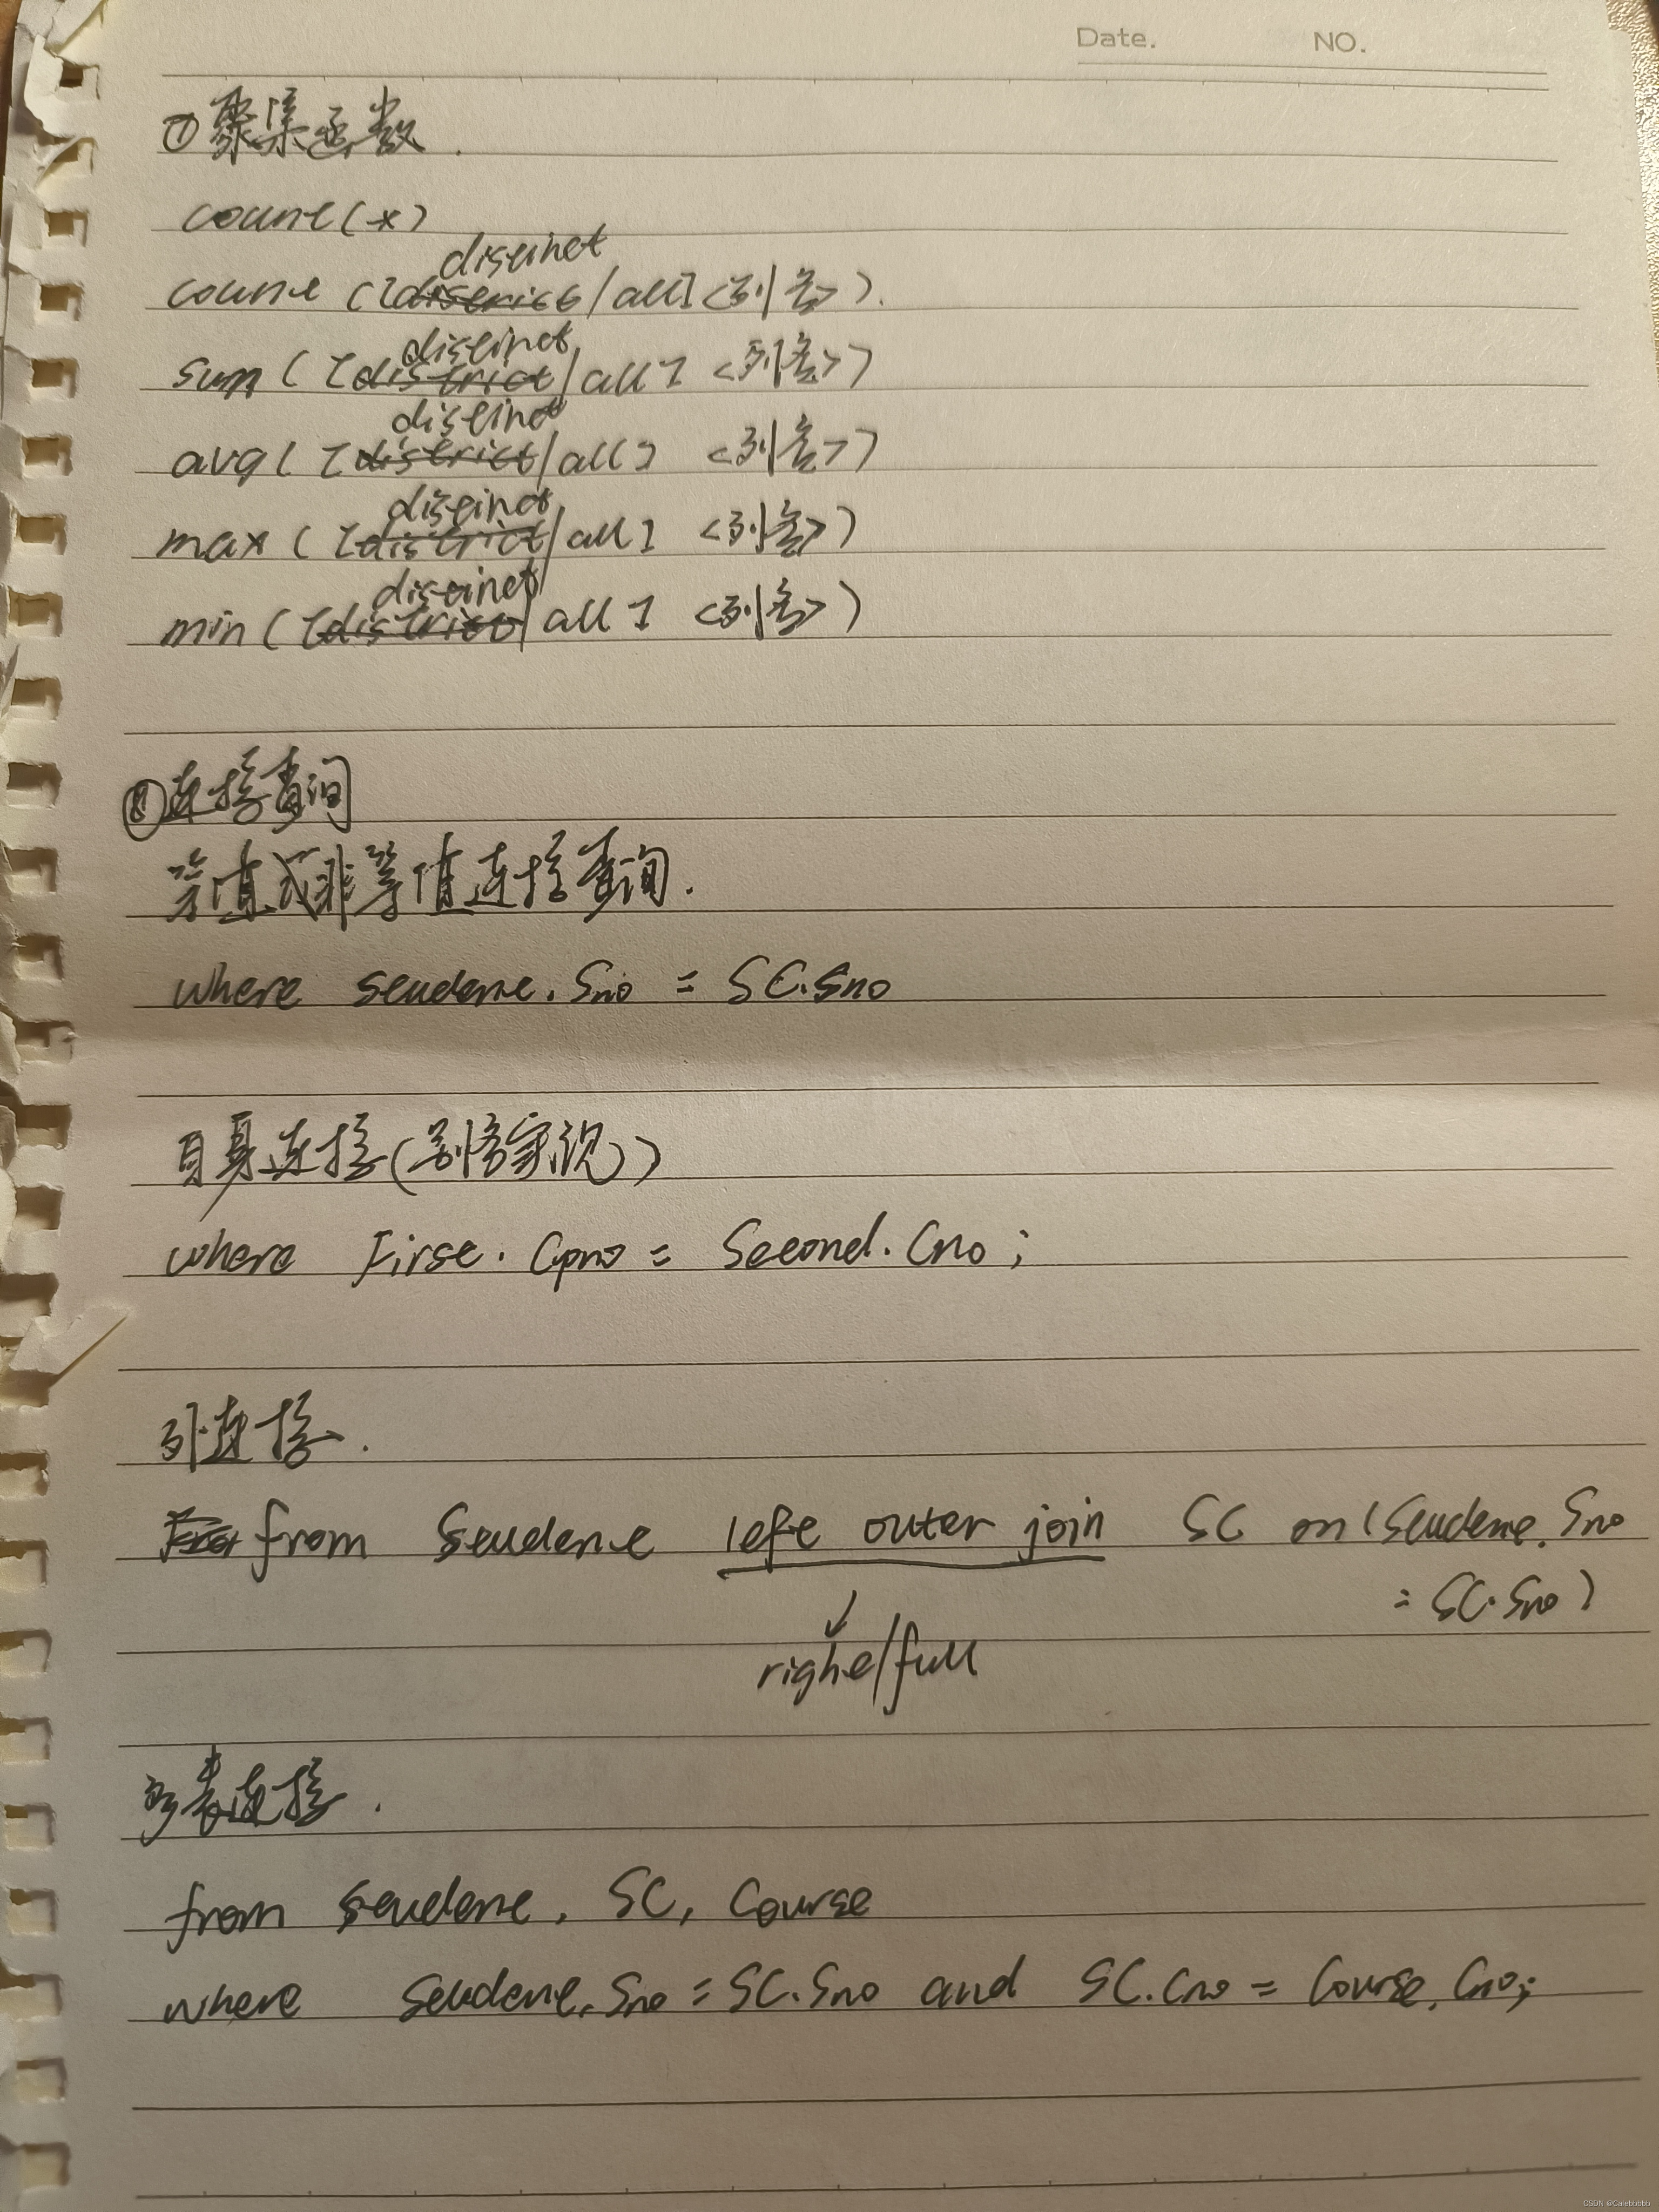 Date. NO.
⑦聚集函数.
count(*)
distinct
count([district/all]<列名>).
distinct
sum([district/all] <列名>)
distinct
avg([district/all] <列名>)
distinct
max([district/all] <列名>)
distinct
min([district/all] <列名>)
⑧连接查询
等值或非等值连接查询.
where student.Sno = SC.Sno
自身连接(别名实现)
where First.Cpno = Second.Cno;
外连接.
from Student left outer join SC on(Student.Sno
=SC.Sno)
right/full
多表连接.
from Student, SC, Course
where Student.Sno=SC.Sno and SC.Cno=Course.Cno;
CSDN @Calebbbbb